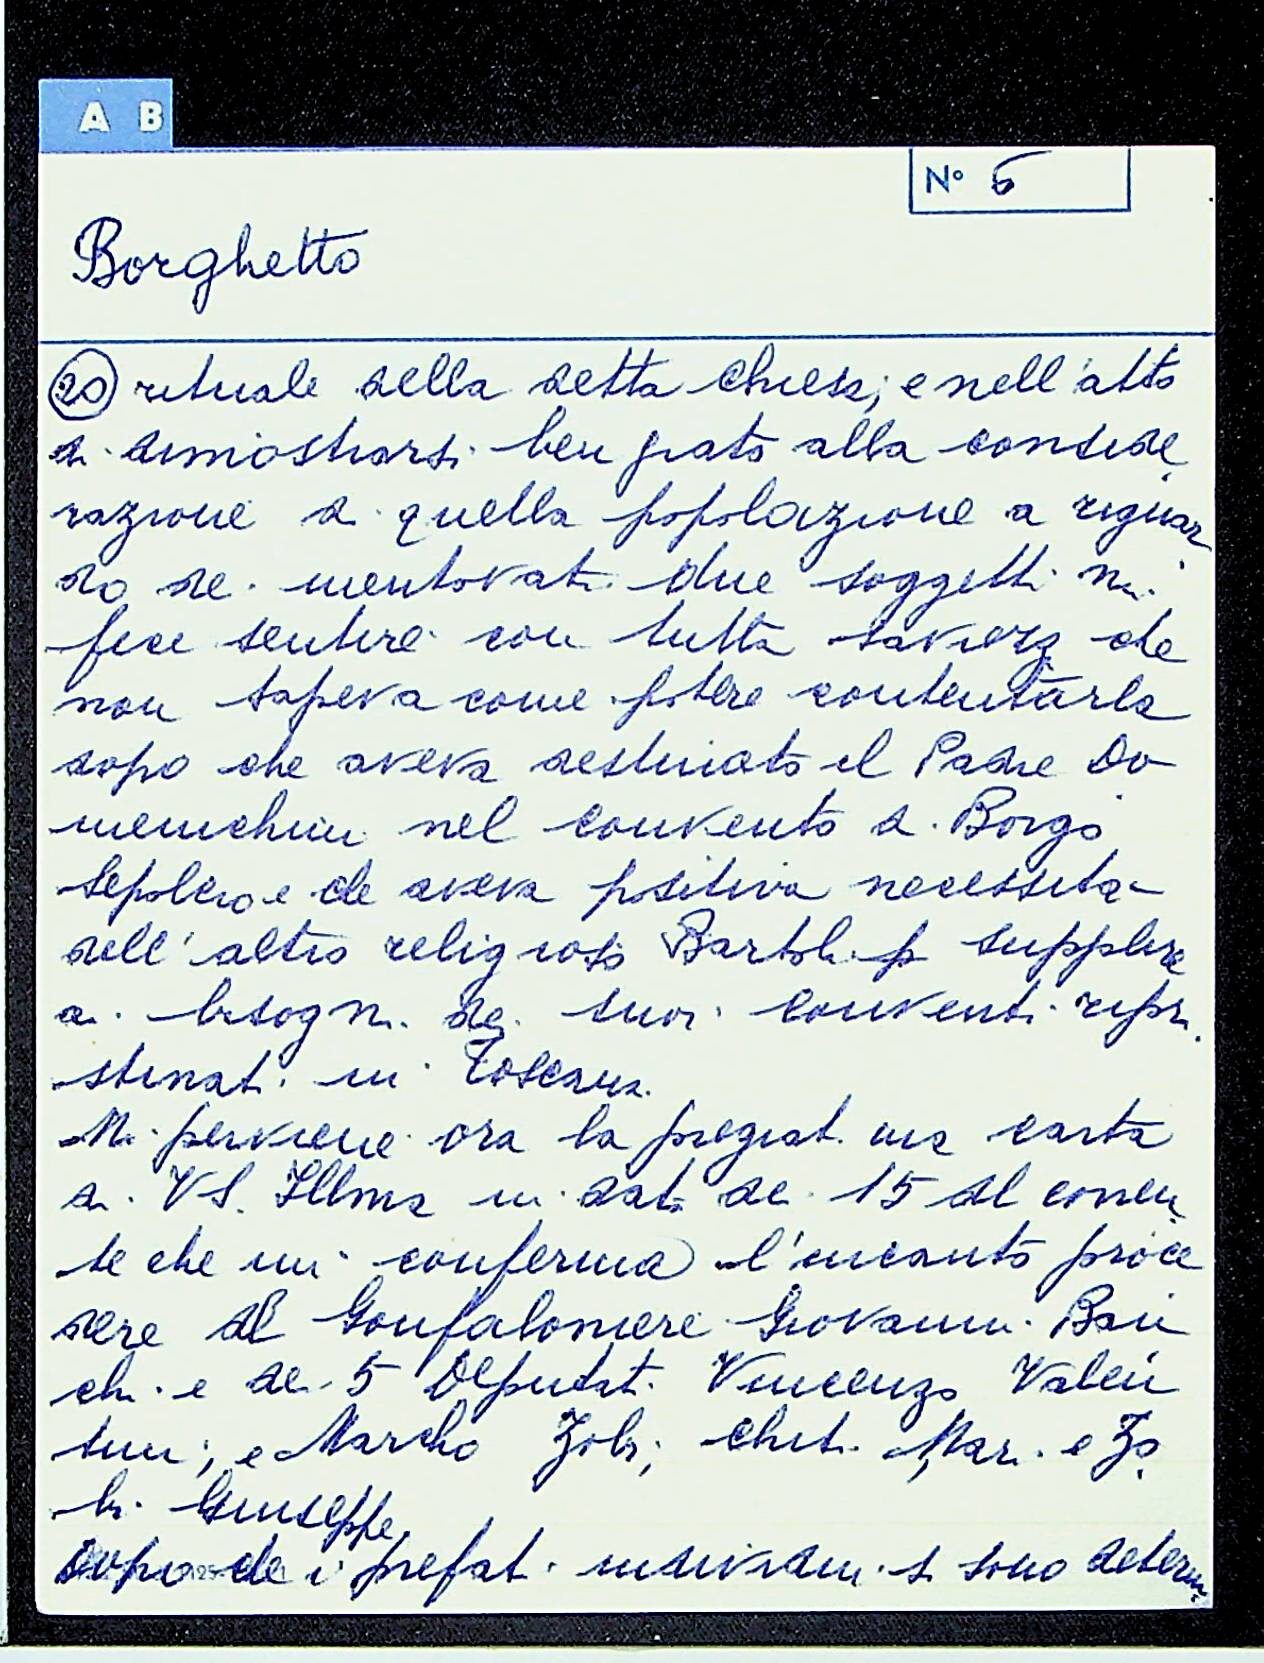 A B
N° 5
Borghetto
20 rituale della detta Chiesa; e nell'atto
di dimostrarsi ben grato alla conside
razione di quella popolazione a riguar
do dei mentovati due soggetti mi
fece sentire con tutta saviezza che
non sapeva come potere contentarla
dopo che aveva destinato il Padre Do
menichini nel convento di Borgo
Sepolcro e che aveva positiva necessita
dell'altro religioso Bartoli p supplire
ai bisogni dei suoi conventi ripri
stinati in Toscana.
Mi perviene ora la pregiat. ma carta
di VS. Illma in data dei 15 del corren
te che mi conferma l'incauto proce
dere del Gonfaloniere Giovanni Bain
chi e dei 5 Deputati Vincenzo Valen
tini; e Marcho Zoli; Chiti Mari e Zo
li Giuseppe.
Dopo che i prefati individui si sono determi